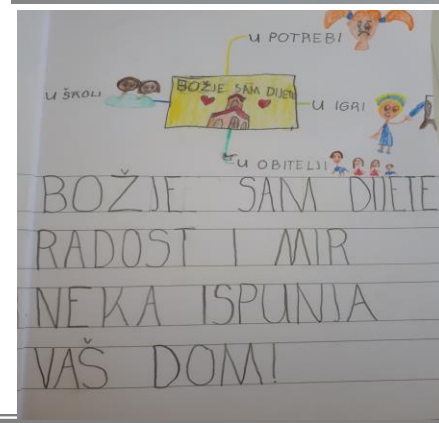 U POTREBI
U ŠKOLI
BOŽJE SAM DIJETE
U IGRI
U OBITELJI
BOŽJE SAM DIJETE
RADOST I MIR
NEKA ISPUNJA
VAŠ DOM!